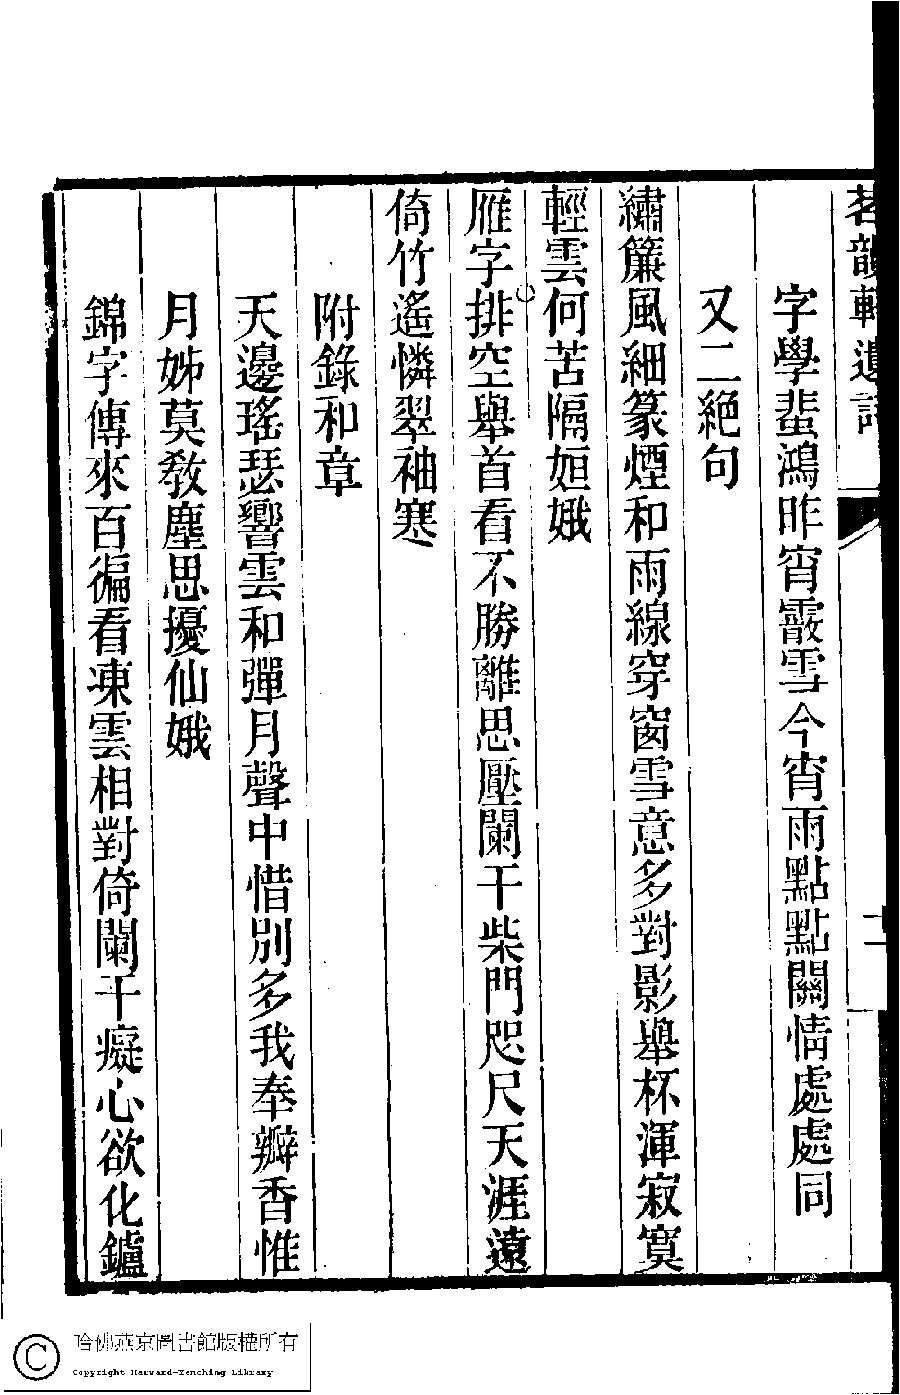 茗韻軒遺詩
二
字學蜚鴻昨宵霰雪今宵雨點點關情處處同
又二絕句
繡簾風細篆煙和雨線穿窗雪意多對影舉杯渾寂寞
輕雲何苦隔姮娥
雁字排空舉首看不勝離思壓闌干柴門咫尺天涯遠
倚竹遙憐翠袖寒
附錄和章
天邊瑤瑟響雲和彈月聲中惜別多我奉瓣香惟
月姊莫教塵思擾仙娥
錦字傳來百徧看凍雲相對倚闌干癡心欲化鑪
哈佛燕京圖書館版權所有
Copyright Harvard-Yenching Library